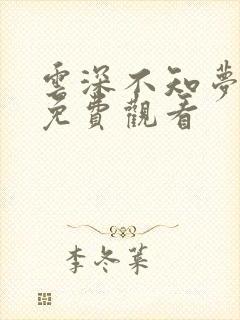 雲深不知夢
免費觀看
李冬葉